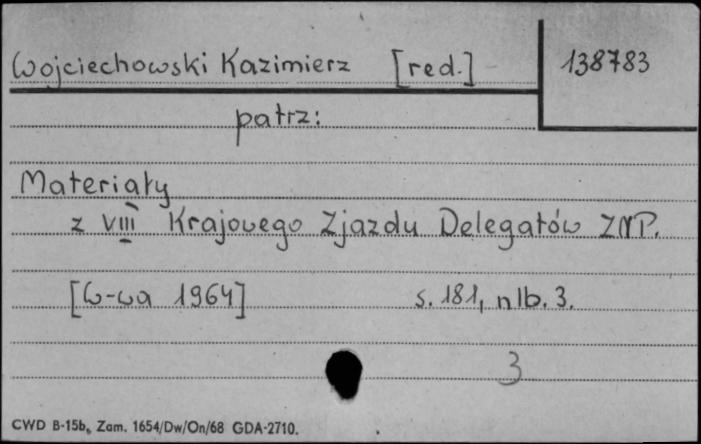 Wojciechowski Kazimierz [red.] 138783
patrz:
Materiały
z VIII Krajowego Zjazdu Delegatów ZNP.
[W-wa 1964] s. 181, nlb. 3.
3
CWD B-15b, Zam. 1654/Dw/On/68 GDA-2710.